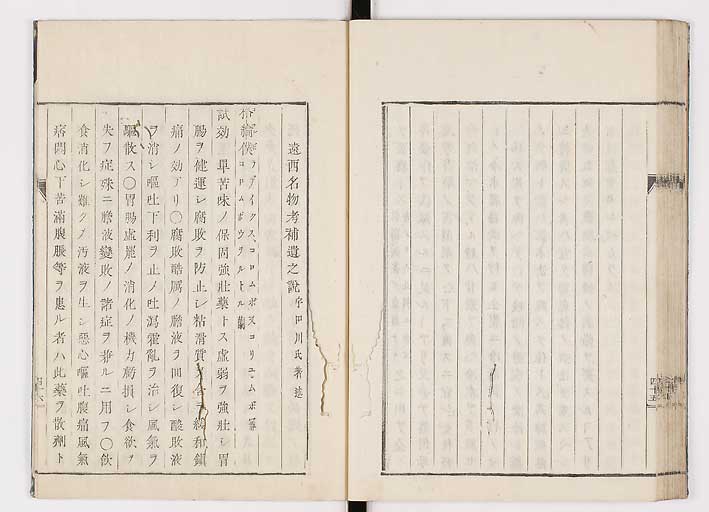 遠西名物考補遺之說 宇田川氏著述
コロムボウヲルトル 蘭
試効 單苦味ノ保固強壯藥トス虛弱ヲ強壯シ胃
腸ヲ健運シ腐敗ヲ防止シ粘滑質 ヲ緩和鎭
痛ノ効アリ〇腐敗酷厲ノ膽液ヲ回復シ酸敗液
ヲ消シ嘔吐下利ヲ止メ吐瀉霍亂ヲ治シ風氣ヲ
驅散ス〇胃腸虛羸ノ消化ノ機力虧損シ食欲ヲ
失フ症殊ニ膽液變敗ノ諸症ヲ兼ルニ用フ〇飲
食消化シ難ク汚液ヲ生シ惡心嘔吐腹痛風氣
痞悶心下苦滿腹脹等ヲ患ル者ハ此藥ヲ散劑ト
四十六
四十五